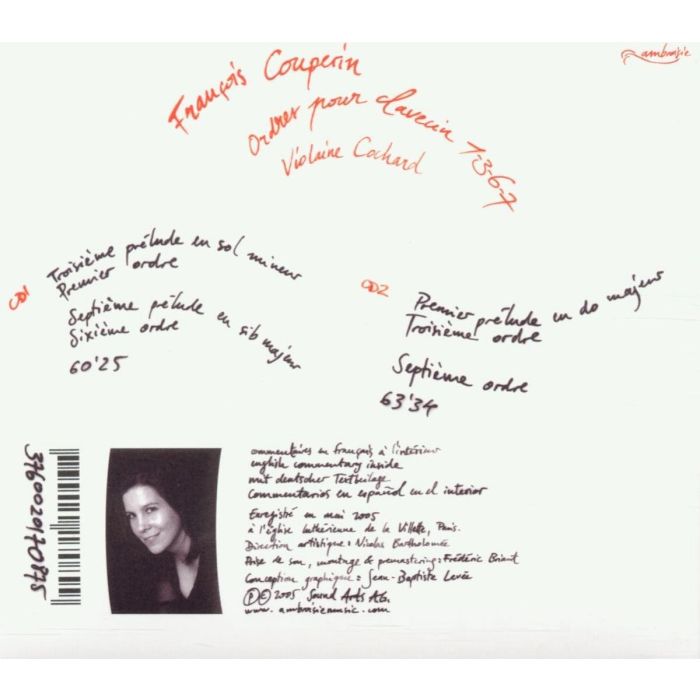 ambroisie
François Couperin
Ordres pour clavecin 1-3-6-7
Violaine Cochard
CD1
Troisième prélude en sol mineur
Premier ordre
Septième prélude en sib majeur
Sixième ordre
60'25
CD2
Premier prélude en do majeur
Troisième ordre
Septième ordre
63'34
3760029170875
commentaires en français à l'intérieur
english commentary inside
mit deutscher Textbeilage
commentarios en español en el interior
Enregistré en mai 2005
à l'église luthérienne de la Villette, Paris.
Direction artistique : Nicolas Bartholomée
Prise de son, montage & premastering : Frédéric Briant
Conception graphique : Jean-Baptiste Levée
℗ © 2005 Sound Arts AG.
www.ambroisiemusic.com